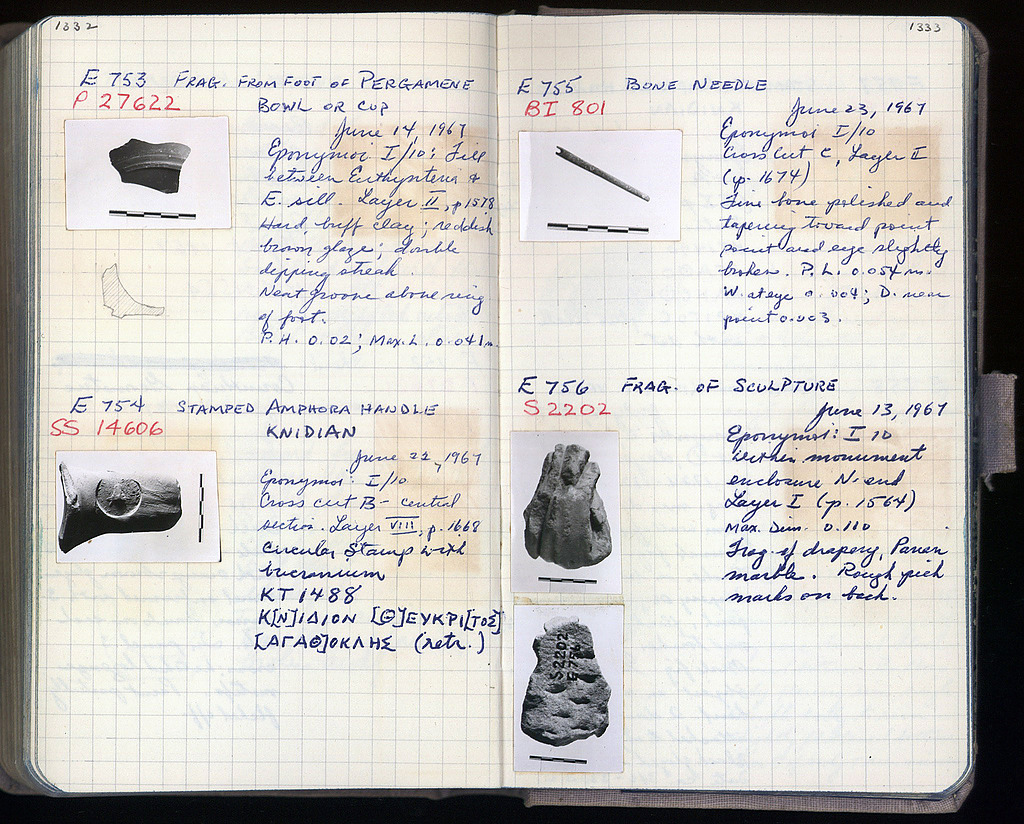 1332
E 753 FRAG. FROM FOOT OF PERGAMENE
P 27622 BOWL OR CUP
June 14, 1967
Eponymoi I/10: Fill
between Euthynteria &
E. sill. Layer II, p 1578
Hard, buff clay; reddish
brown glaze; double
dipping streak.
Neat groove above ring
of foot.
P.H. 0.02; Max. L. 0.041 m.
E 754 STAMPED AMPHORA HANDLE
SS 14606 KNIDIAN
June 22, 1967
Eponymoi: I/10
Cross cut B - central
section. Layer VIII, p. 1668
Circular Stamp with
bucranium
KT 1488
Κ[Ν]ΙΔΙΟΝ [Θ]ΕΥΚΡΙ[ΤΟΣ]
[ΑΓΑΘ]ΟΚΛΗΣ (retr.)
1333
E 755 BONE NEEDLE
BI 801
June 23, 1967
Eponymoi I/10
Cross Cut C, Layer I
(p. 1674)
Fine bone polished and
tapering toward point
point and eye slightly
broken. P.L. 0.054 m.
W. at eye 0.004; D. near
point 0.003.
E 756 FRAG. OF SCULPTURE
S 2202
June 13, 1967
Eponymoi: I 10
within monument
enclosure N. end
Layer I (p. 1564)
Max. Dim. 0.110
Frag. of drapery, Parian
marble. Rough pick
marks on back.
S 2202
E 756